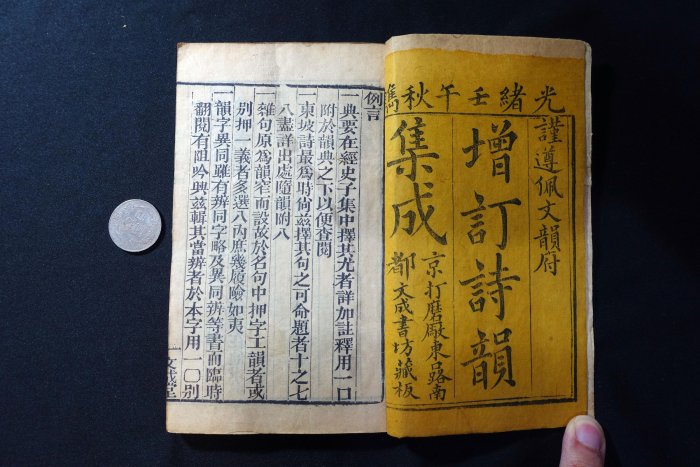 光緒壬午秋鐫
謹遵佩文韻府
增訂詩韻
集成
京都
打磨厰東口路南
文成書坊藏板
例言
一典要在經史子集中擇其尤者詳加註釋用一口
附於韻典之下以便查閱
一東坡詩最爲時尙兹擇其句之可命題者十之七
八盡詳出處隨韻附入
一雜句原爲韻窄而設故於名句中押字工韻者或
別押一義者多選入內庶幾履險如夷
一韻字異同雖有辨同字略及異同辨等書而臨時
翻閱有阻吟興兹輯其當辨者於本字用一〇別